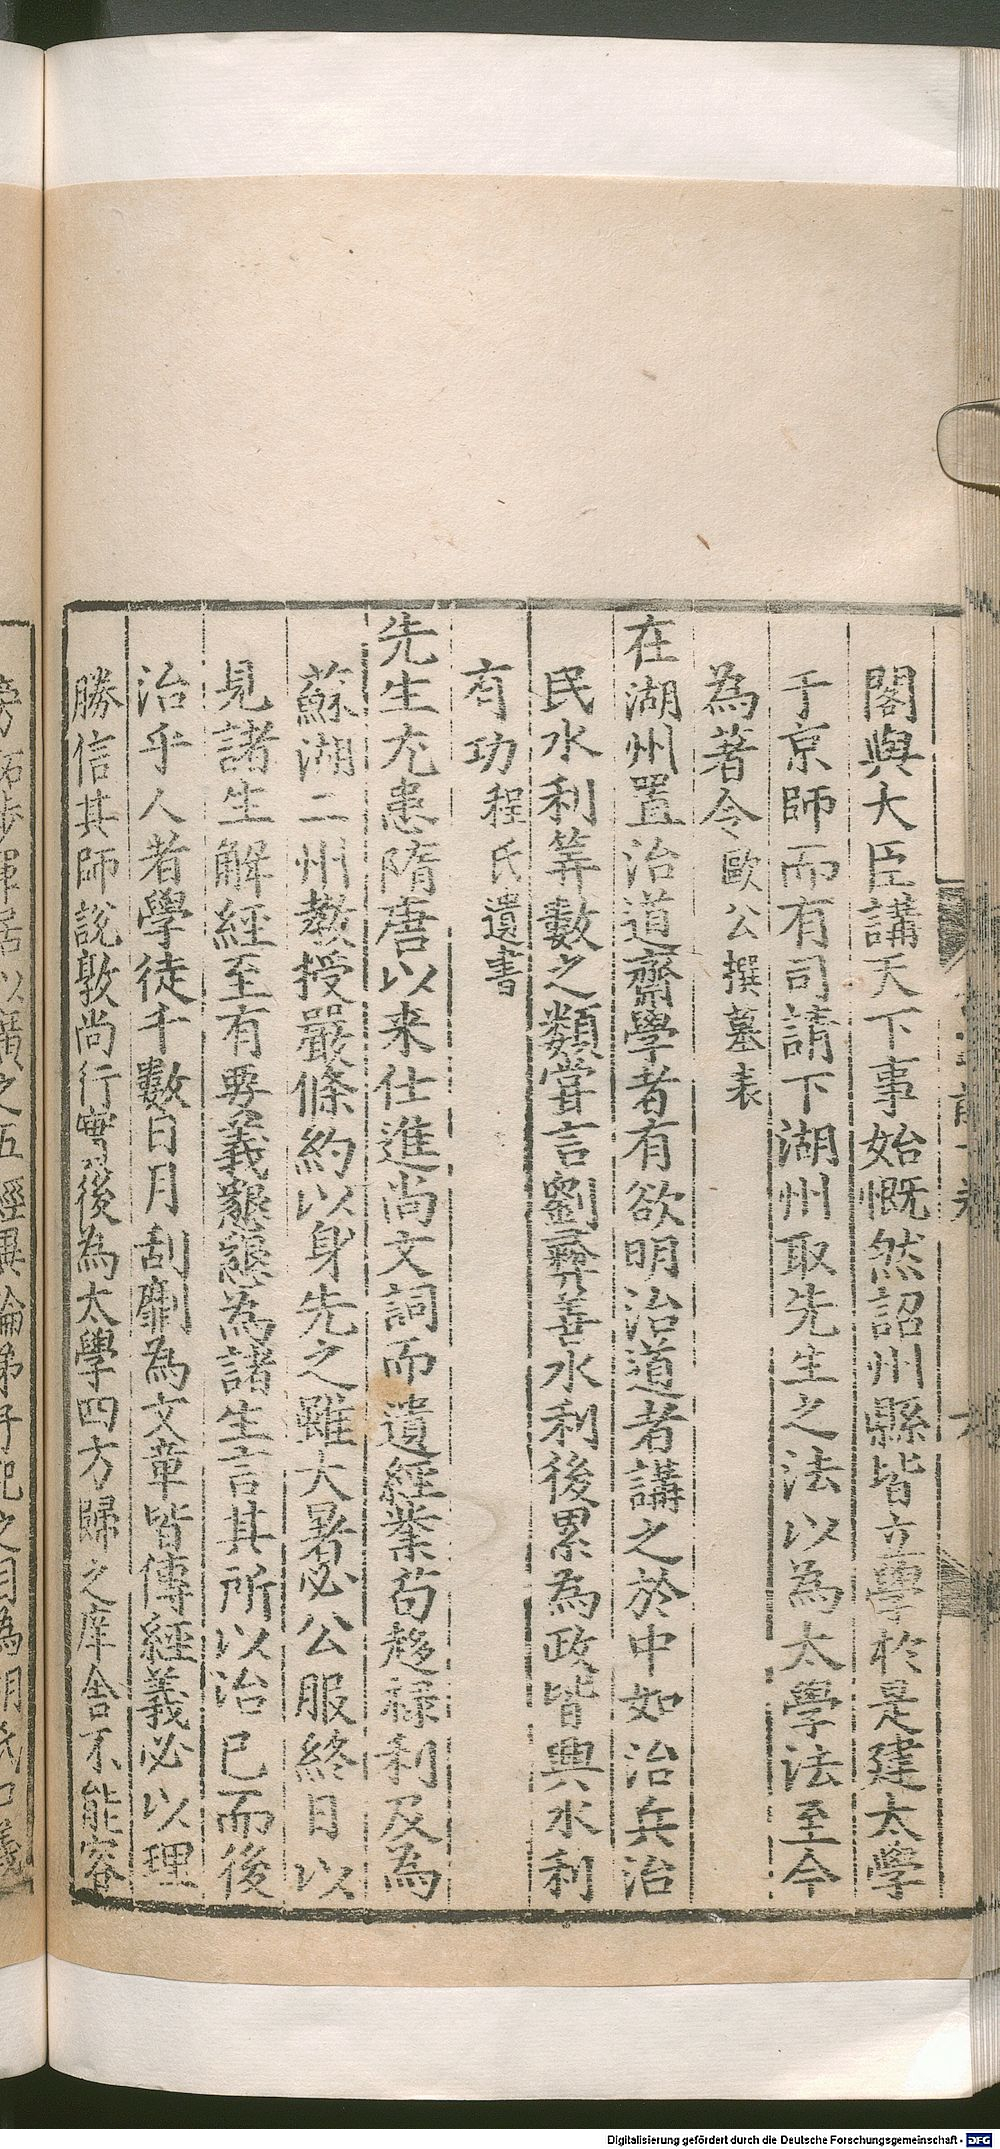 閣與大臣講天下事始慨然詔州縣皆立學於是建太學
于京師而有司請下湖州取先生之法以為太學法至今
為著令歐公撰墓表
在湖州置治道齋學者有欲明治道者講之於中如治兵治
民水利筭數之類甞言劉彞善水利後累為政皆興水利
有功程氏遺書
先生尤患隋唐以来仕進尚文詞而遺經業茍趍禄利及為
蘇湖二州教授嚴條約以身先之雖大暑必公服終日以
見諸生解經至有要義懇懇為諸生言其所以治己而後
治乎人者學徒千數日月刮劘為文章皆傳經義必以理
勝信其師說敦尚行實後為太學四方歸之庠舍不能容
旁拓步軍居以廣之五經異論弟子記之目為胡氏口義
Digitalisierung gefördert durch die Deutsche Forschungsgemeinschaft - DFG